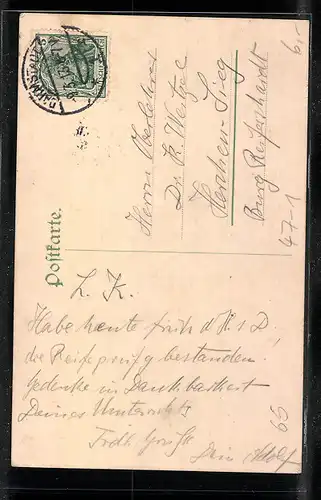 Postkarte.
Herrn Oberlehrer
Dr. K. Wentzel
Herchen-Sieg
Burg Reifenhardt
6,-
47-1
L. K.
Habe heute früh d. H. s D.
die Reifeprüfg bestanden.
Gedenke in Dankbarkeit
Deines Unterrichts
Frdl. Grüße
Dein Adolf
65